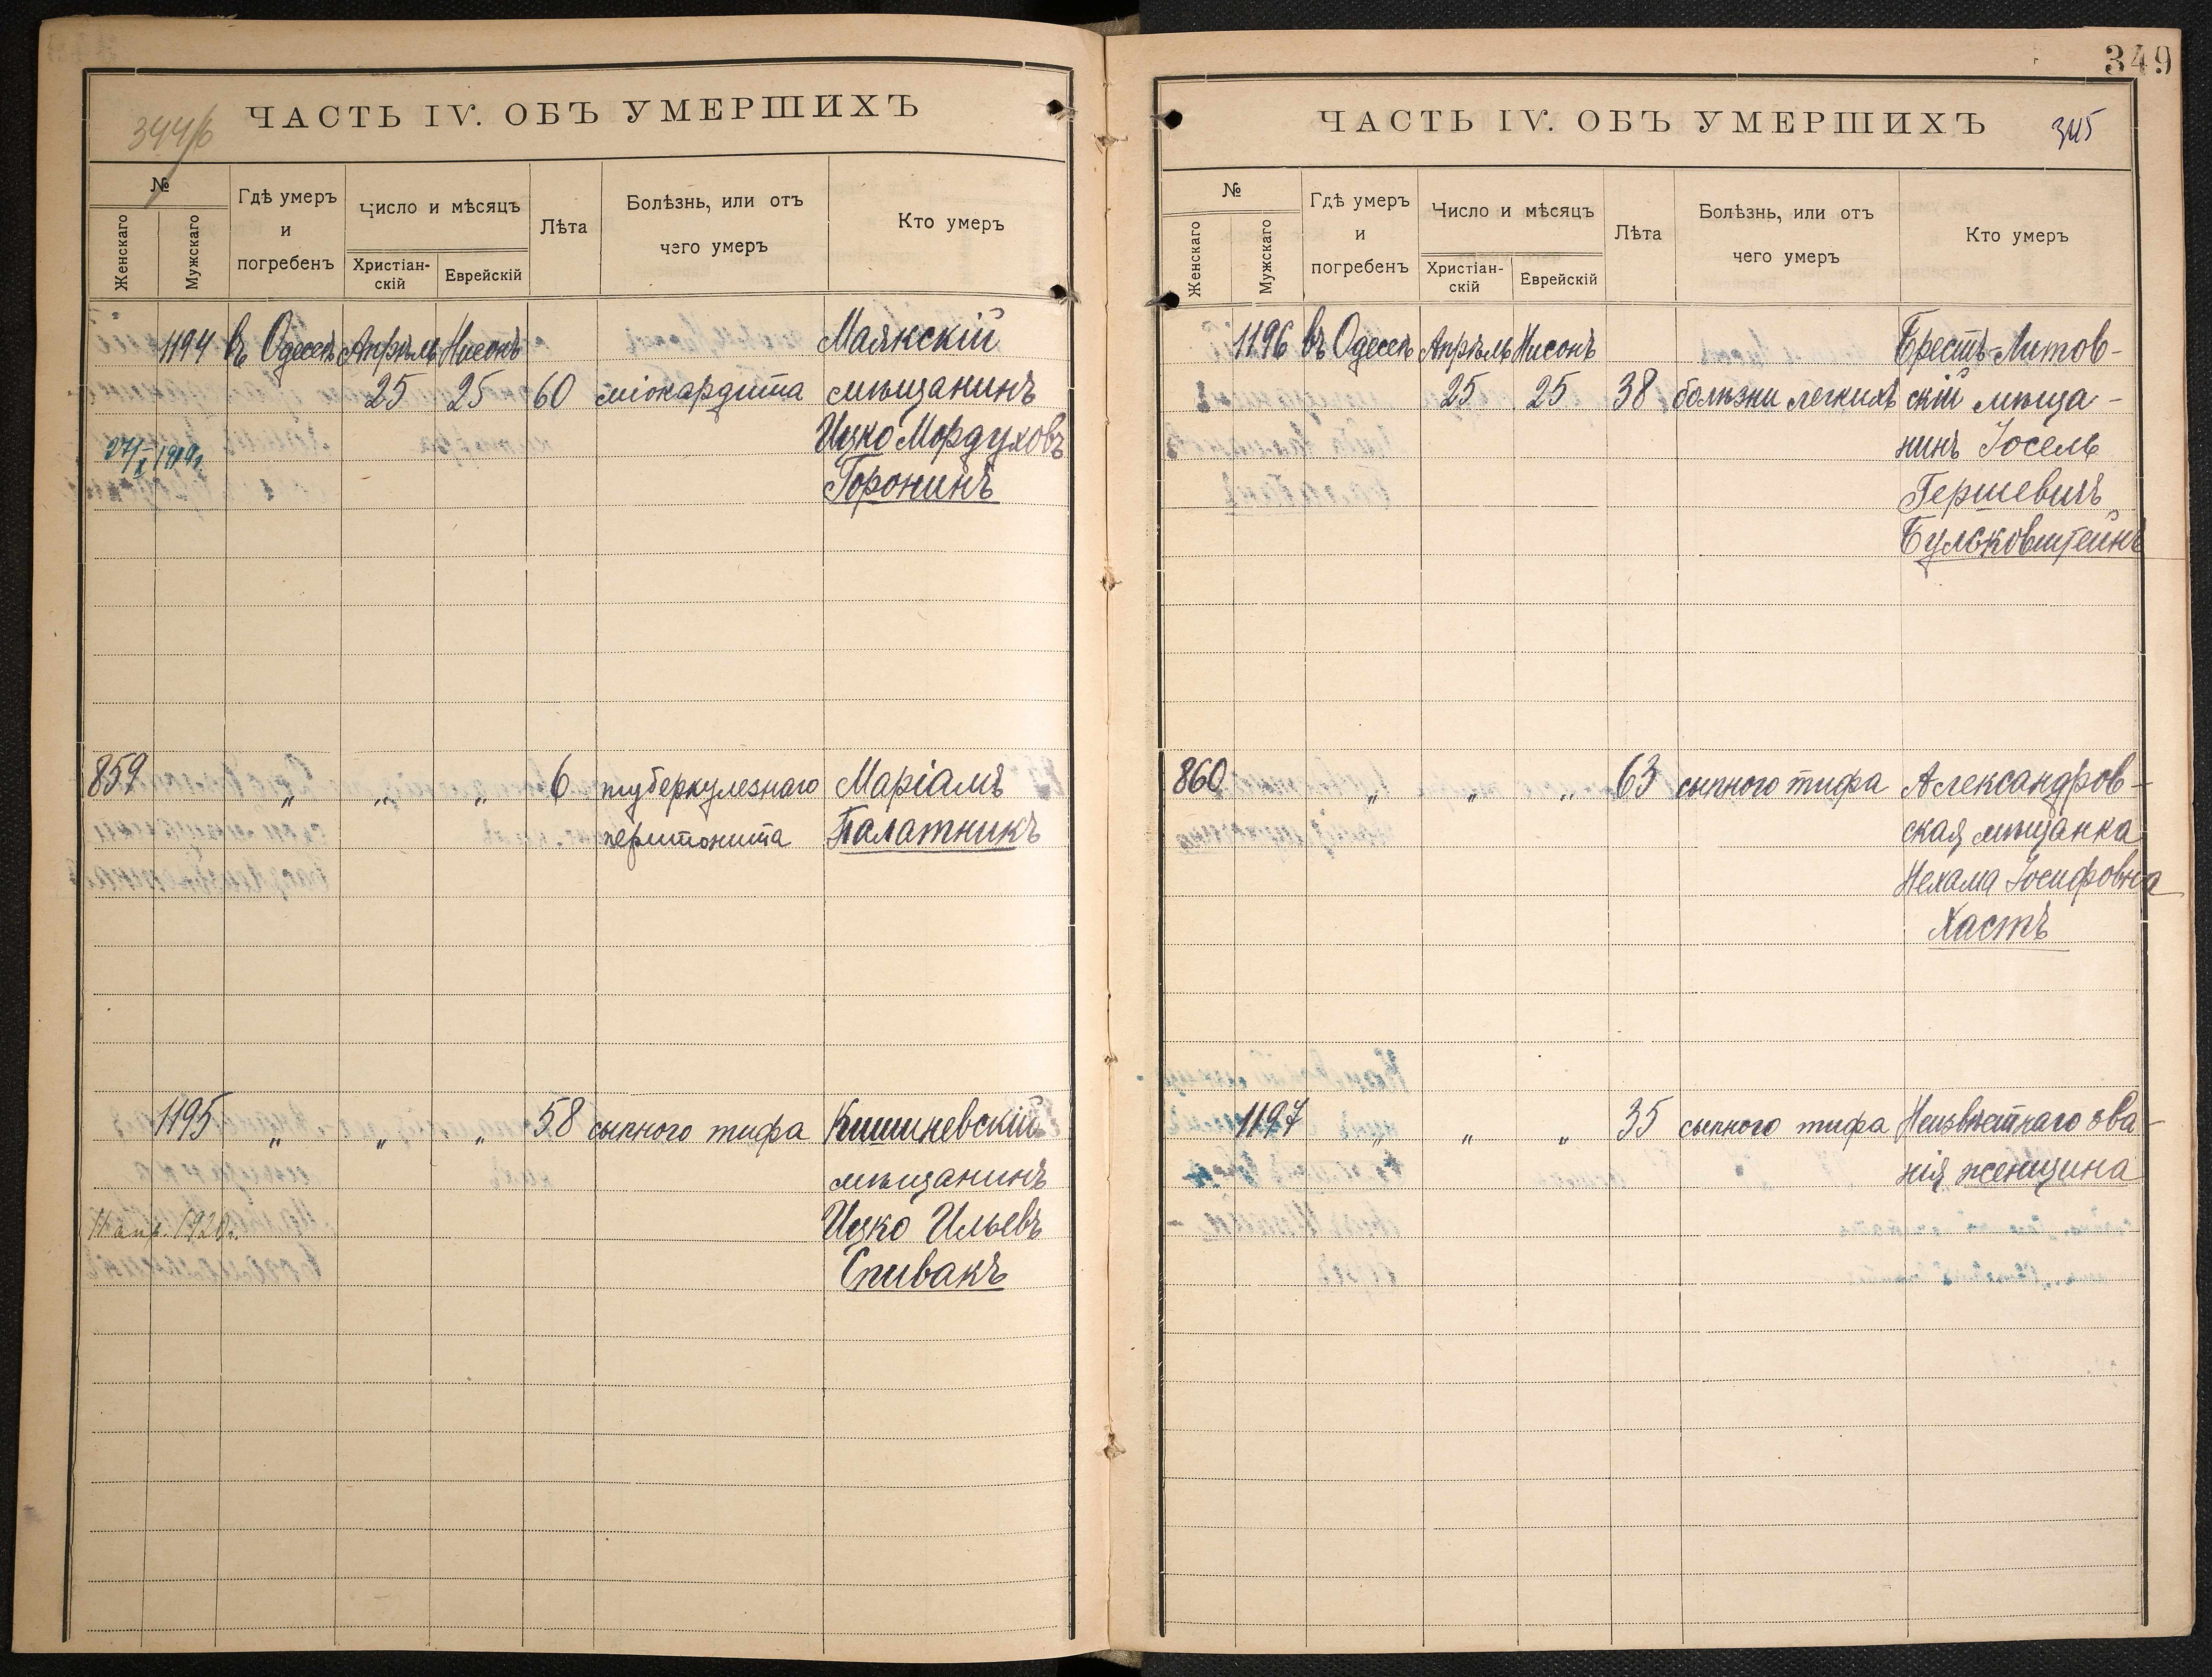 344/б
ЧАСТЬ IV. ОБЪ УМЕРШИХЪ
№
Женскаго
Мужскаго
Гдѣ умеръ
и
погребенъ
Число и мѣсяцъ
Христіан-
скій
Еврейскій
Лѣта
Болѣзнь, или отъ
чего умеръ
Кто умеръ
1194 въ Одессѣ Апрѣль Нисонъ Маякскій
25 25 60 міокардита мѣщанинъ
Ицко Мордуховъ
Горонинъ
859 „ „ „ 6 туберкулезнаго Маріамъ
перитонита Палатникъ
1195 „ „ „ 58 сыпного тифа Кишиневскій
мѣщанинъ
11 апр. 1920г. Ицко Ильевъ
Спивакъ
349
ЧАСТЬ IV. ОБЪ УМЕРШИХЪ 345
№
Женскаго
Мужскаго
Гдѣ умеръ
и
погребенъ
Число и мѣсяцъ
Христіан-
скій
Еврейскій
Лѣта
Болѣзнь, или отъ
чего умеръ
Кто умеръ
1196 въ Одессѣ Апрѣль Нисонъ Брестъ-Литов-
25 25 38 болѣзни легкихъ скій мѣща-
нинъ Іосель
Гершевичъ
Бульковштейнъ
860 „ „ „ 63 сыпного тифа Александров-
ская мѣщанка
Нехама Іосифовна
Хастъ
1197 „ „ „ 35 сыпного тифа Неизвѣстнаго зва-
нія женщина